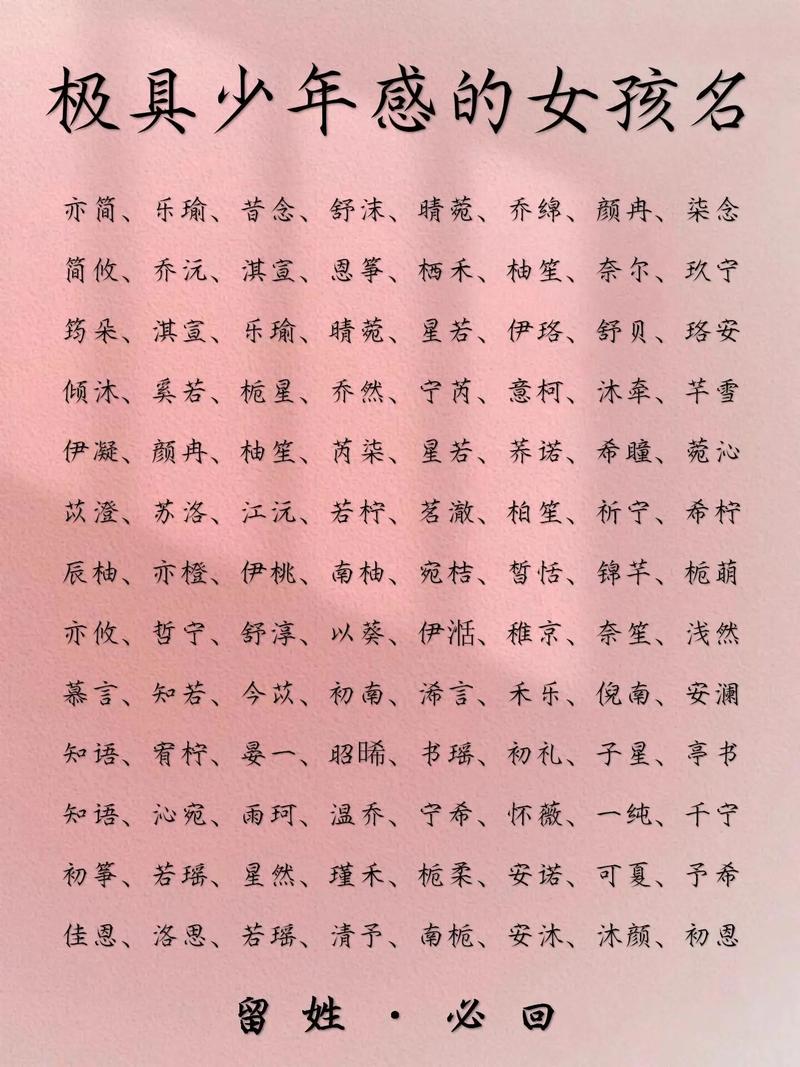 极具少年感的女孩名
亦简、乐瑜、昔念、舒沫、晴菀、乔绵、颜冉、柒念
简攸、乔沅、淇宣、恩筝、栖禾、柚笙、奈尔、玖宁
筠朵、淇宣、乐瑜、晴菀、星若、伊珞、舒贝、珞安
倾沐、奚若、栀星、乔然、宁芮、意柯、沐牵、芊雪
伊凝、颜冉、柚笙、芮柒、星若、荞诺、希瞳、菀沁
苡澄、苏洛、江沅、若柠、茗澈、柏笙、祈宁、希柠
辰柚、亦橙、伊桃、南柚、宛桔、皙恬、锦芊、栀萌
亦攸、哲宁、舒淳、以葵、伊湉、稚京、奈笙、浅然
慕言、知若、今苡、初南、浠言、禾乐、倪南、安澜
知语、宥柠、晏一、昭晞、书瑶、初礼、子星、亭书
知语、沁宛、雨珂、温乔、宁希、怀薇、一纯、千宁
初筝、若瑶、星然、瑾禾、栀柔、安诺、可夏、予希
佳恩、洛思、若瑶、清予、南栀、安沐、沐颜、初恩
留姓·必回